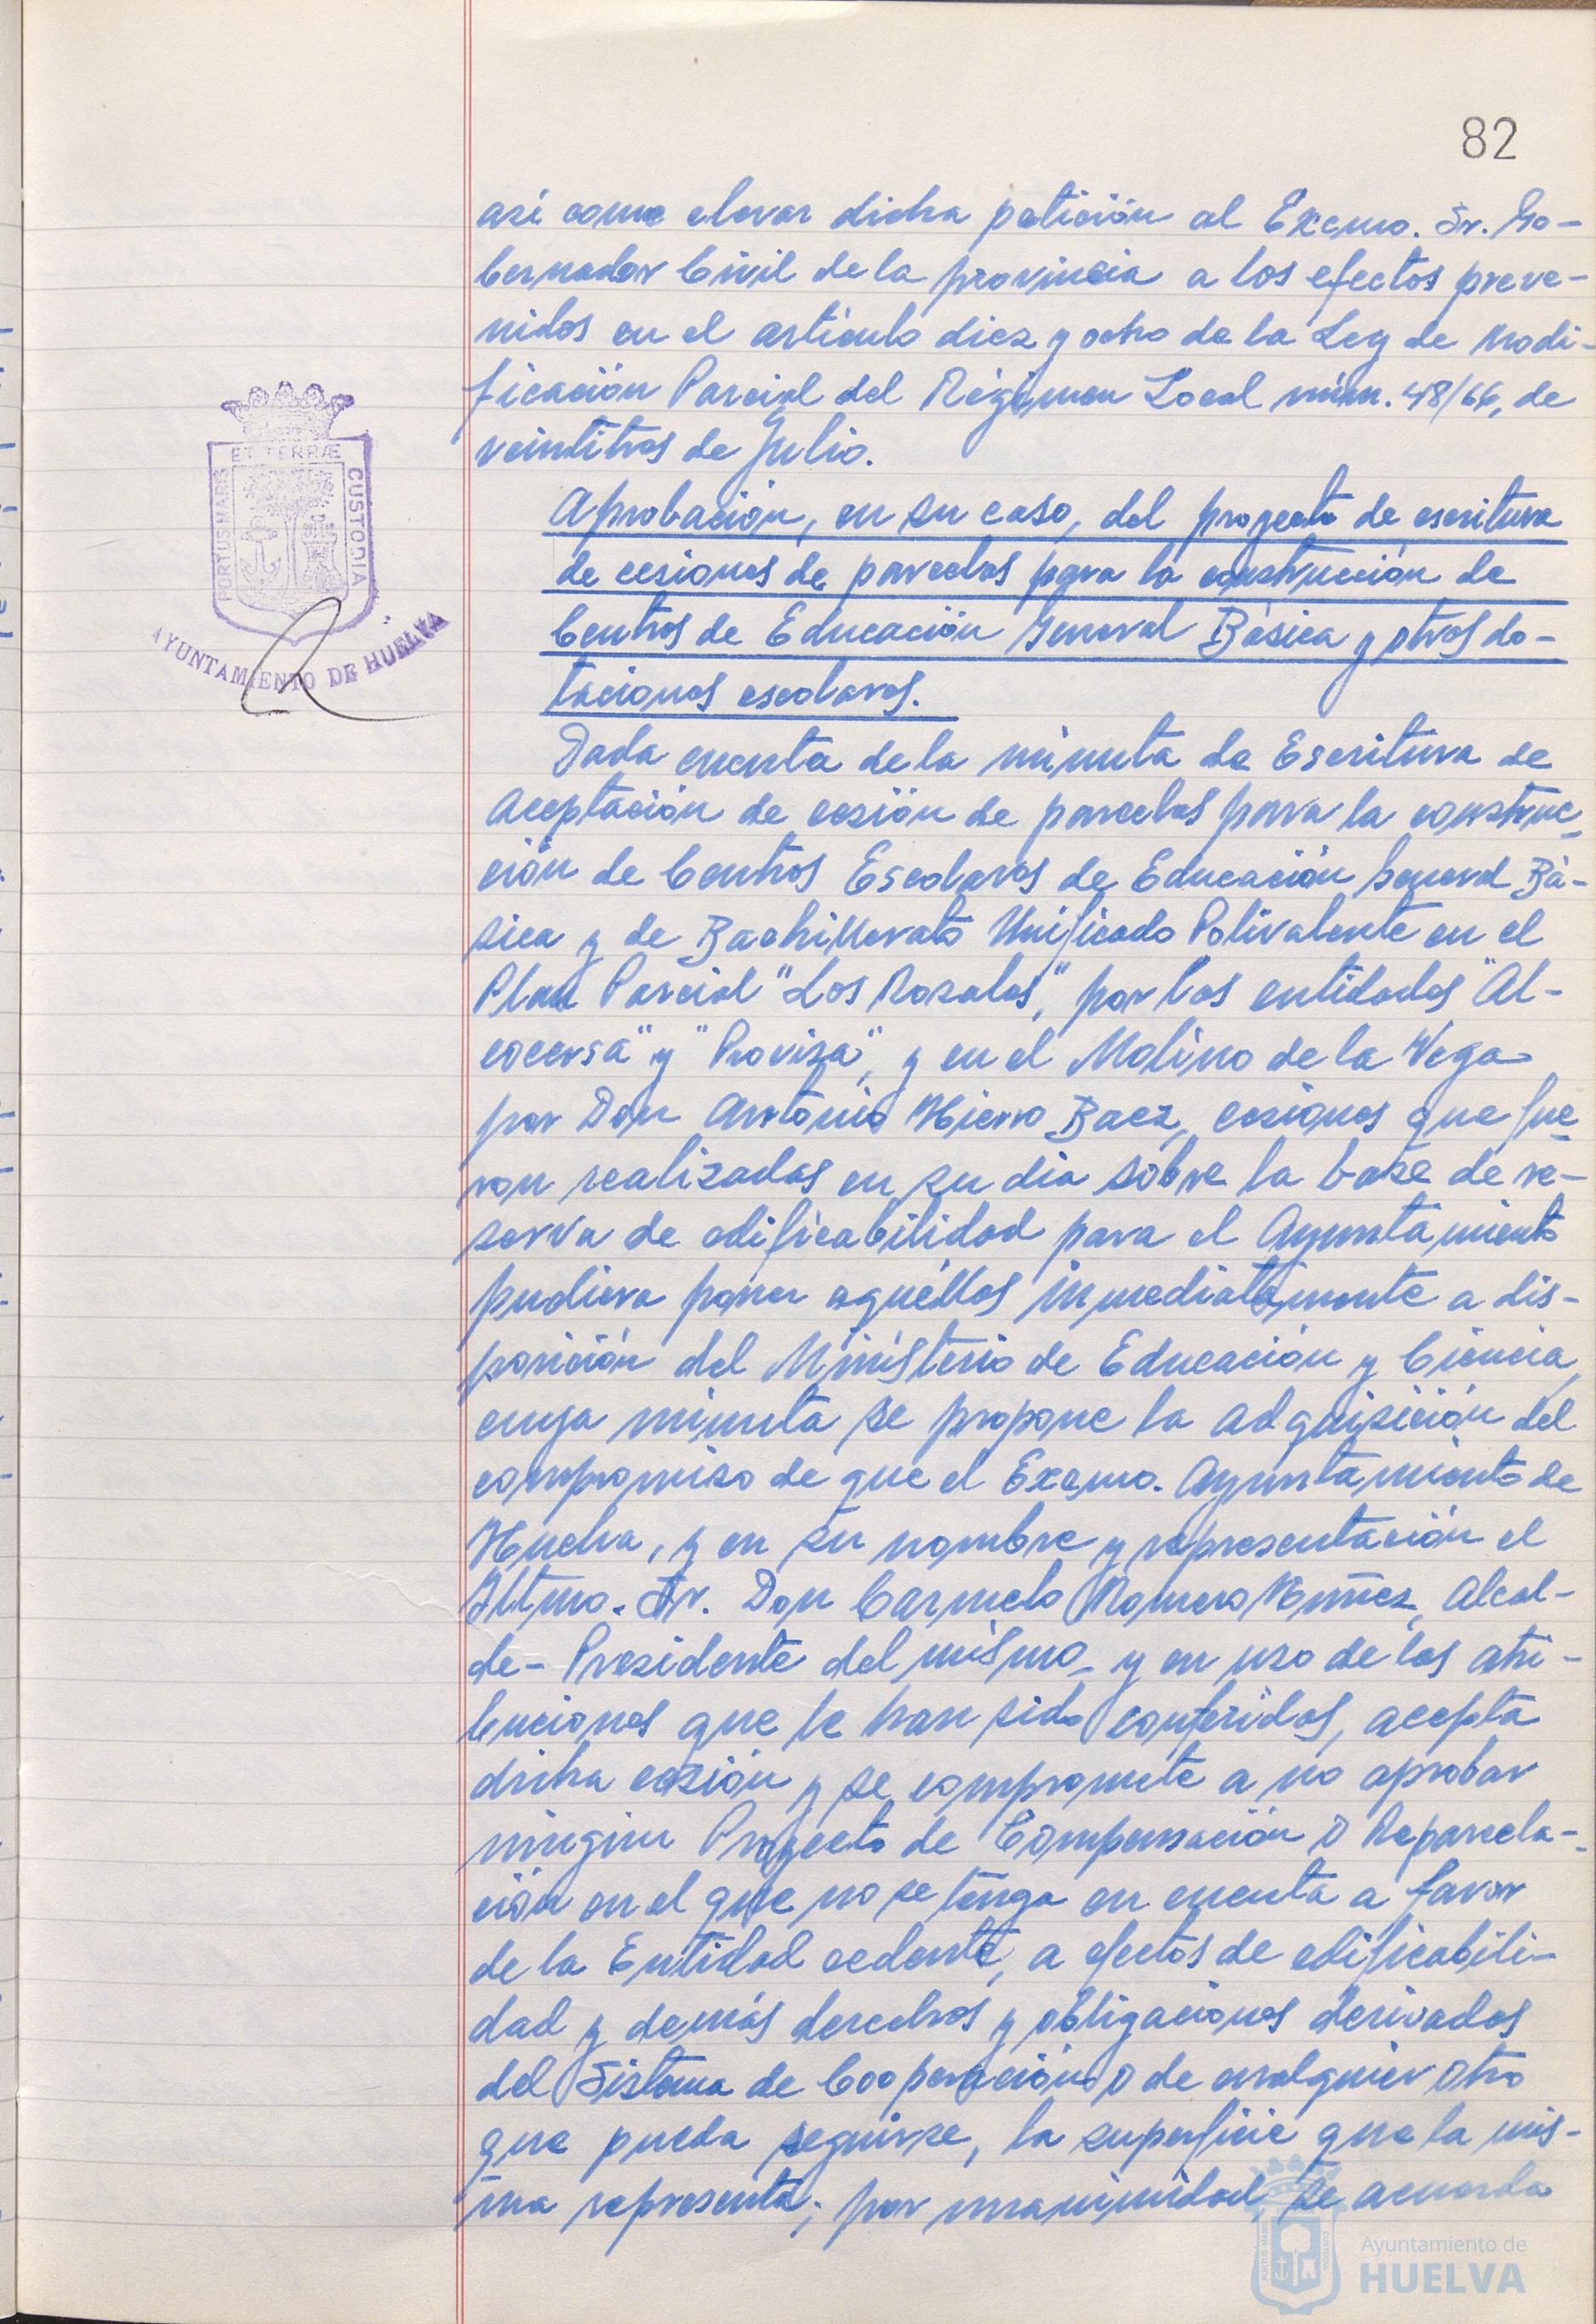 82
así como elevar dicha petición al Excmo. Sr. Go-
bernador Civil de la provincia a los efectos preve-
nidos en el artículo diez y ocho de la Ley de Modi-
ficación Parcial del Régimen Local núm. 48/66, de
veintitres de Julio.
Aprobación, en su caso, del proyecto de escritura
de cesiones de parcelas para la construcción de
Centros de Educación General Básica y otras do-
taciones escolares.
Dada cuenta de la minuta de Escritura de
Aceptación de cesión de parcelas para la construc-
ción de Centros Escolares de Educación General Bá-
sica y de Bachillerato Unificado Polivalente en el
Plan Parcial "Los Rosales", por las entidades "Al-
cocersa" y "Proviza", y en el Molino de la Vega
por Don Antonio Hierro Baez, cesiones que fue-
ron realizadas en su dia sobre la base de re-
serva de edificabilidad para el Ayuntamiento
pudiera poner aquéllos inmediatamente a dis-
posición del Ministerio de Educación y Ciencia,
cuya minuta se propone la adquisición del
compromiso de que el Excmo. Ayuntamiento de
Huelva, y en su nombre y representación el
Iltmo. Sr. Don Carmelo Romero Nuñez, Alcal-
de-Presidente del mismo, y en uso de las atri-
buciones que le han sido conferidas, acepta
dicha cesión y se compromete a no aprobar
ningún Proyecto de Compensación o Reparcela-
ción en el que no se tenga en cuenta a favor
de la Entidad cedente, a efectos de edificabili-
dad y demás derechos y obligaciones derivados
del Sistema de Cooperación o de cualquier otro
que pueda seguirse, la superficie que la mis-
ma representa; por unanimidad, se acuerda
PORTUS MARIS
ET TERRÆ
CUSTODIA
AYUNTAMIENTO DE HUELVA
Ayuntamiento de
HUELVA